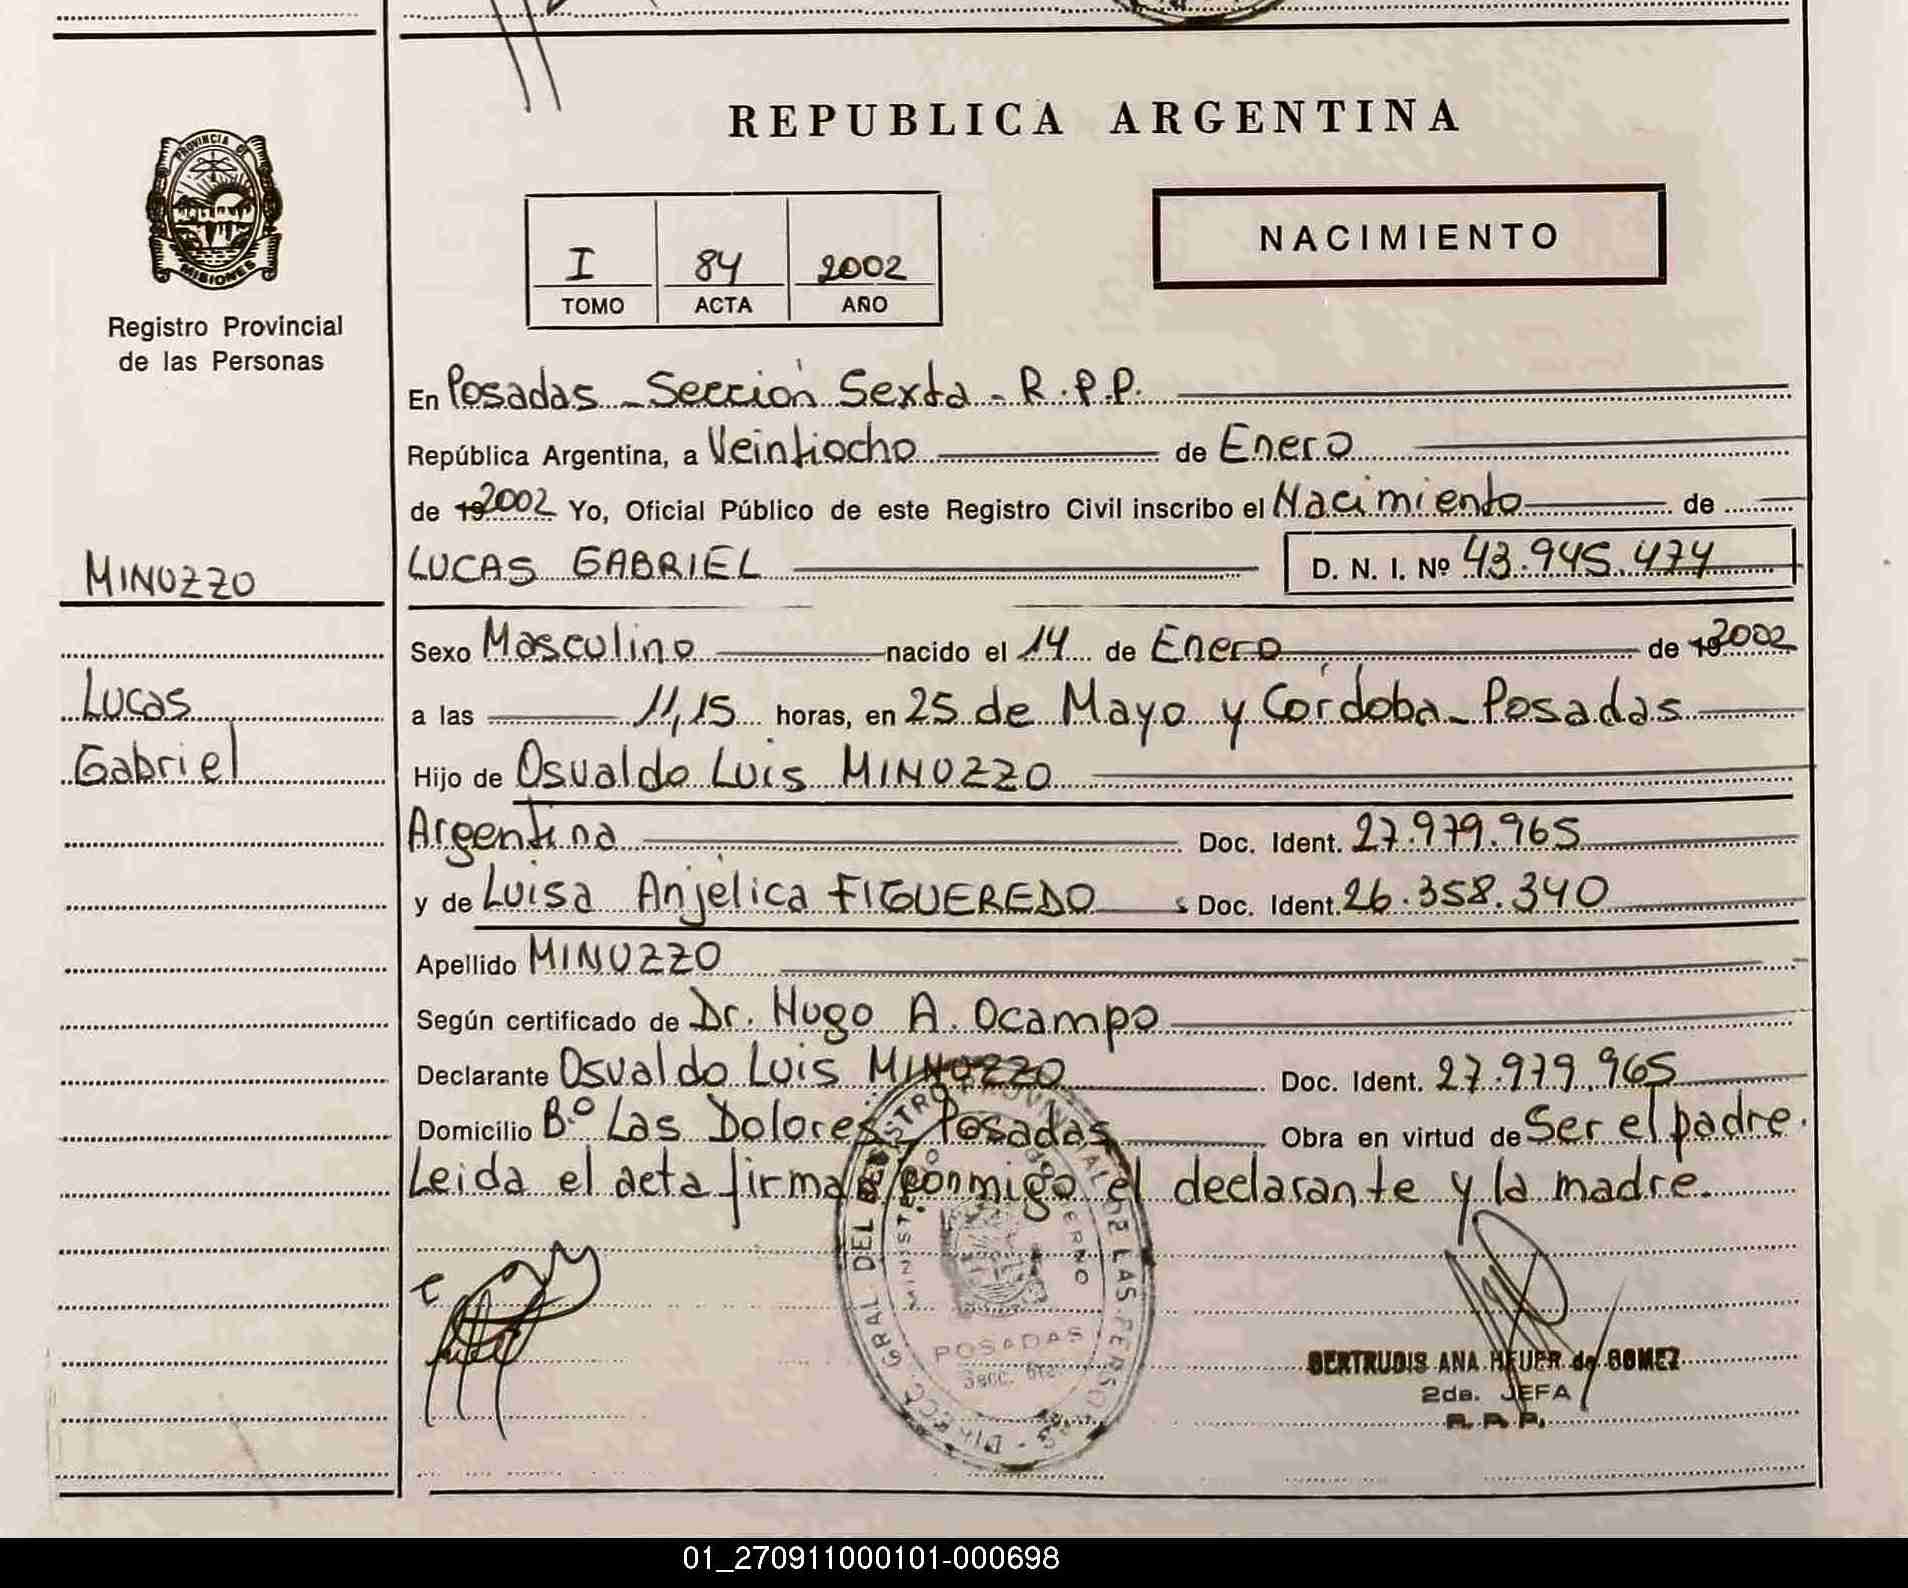 REPUBLICA ARGENTINA
PROVINCIA DE
MISIONES
Registro Provincial
de las Personas
I 84 2002
TOMO ACTA AÑO
NACIMIENTO
En Posadas - Sección Sexta - R.P.P.
República Argentina, a Veintiocho de Enero
de 19 2002 Yo, Oficial Público de este Registro Civil inscribo el Nacimiento de
MINUZZO
LUCAS GABRIEL D. N. I. Nº 43.945.474
Sexo Masculino nacido el 14 de Enero de 19 2002
Lucas
a las 11,15 horas, en 25 de Mayo y Córdoba - Posadas
Gabriel
Hijo de Osvaldo Luis MINUZZO
Argentina Doc. Ident. 27.979.965
y de Luisa Anjélica FIGUEREDO s Doc. Ident. 26.358.340
Apellido MINUZZO
Según certificado de Dr. Hugo A. Ocampo
Declarante Osvaldo Luis MINUZZO Doc. Ident. 27.979.965
Domicilio Bº Las Dolores, Posadas Obra en virtud de Ser el padre.
Leida el acta firman conmigo el declarante y la madre.
DIRECC. GRAL. DEL REGISTRO PROVINCIAL DE LAS PERSONAS
MINISTERIO DE GOBIERNO
POSADAS
Secc. 6ta.
GERTRUDIS ANA HEUER de GOMEZ
2da. JEFA
R. P. P.
01_270911000101-000698